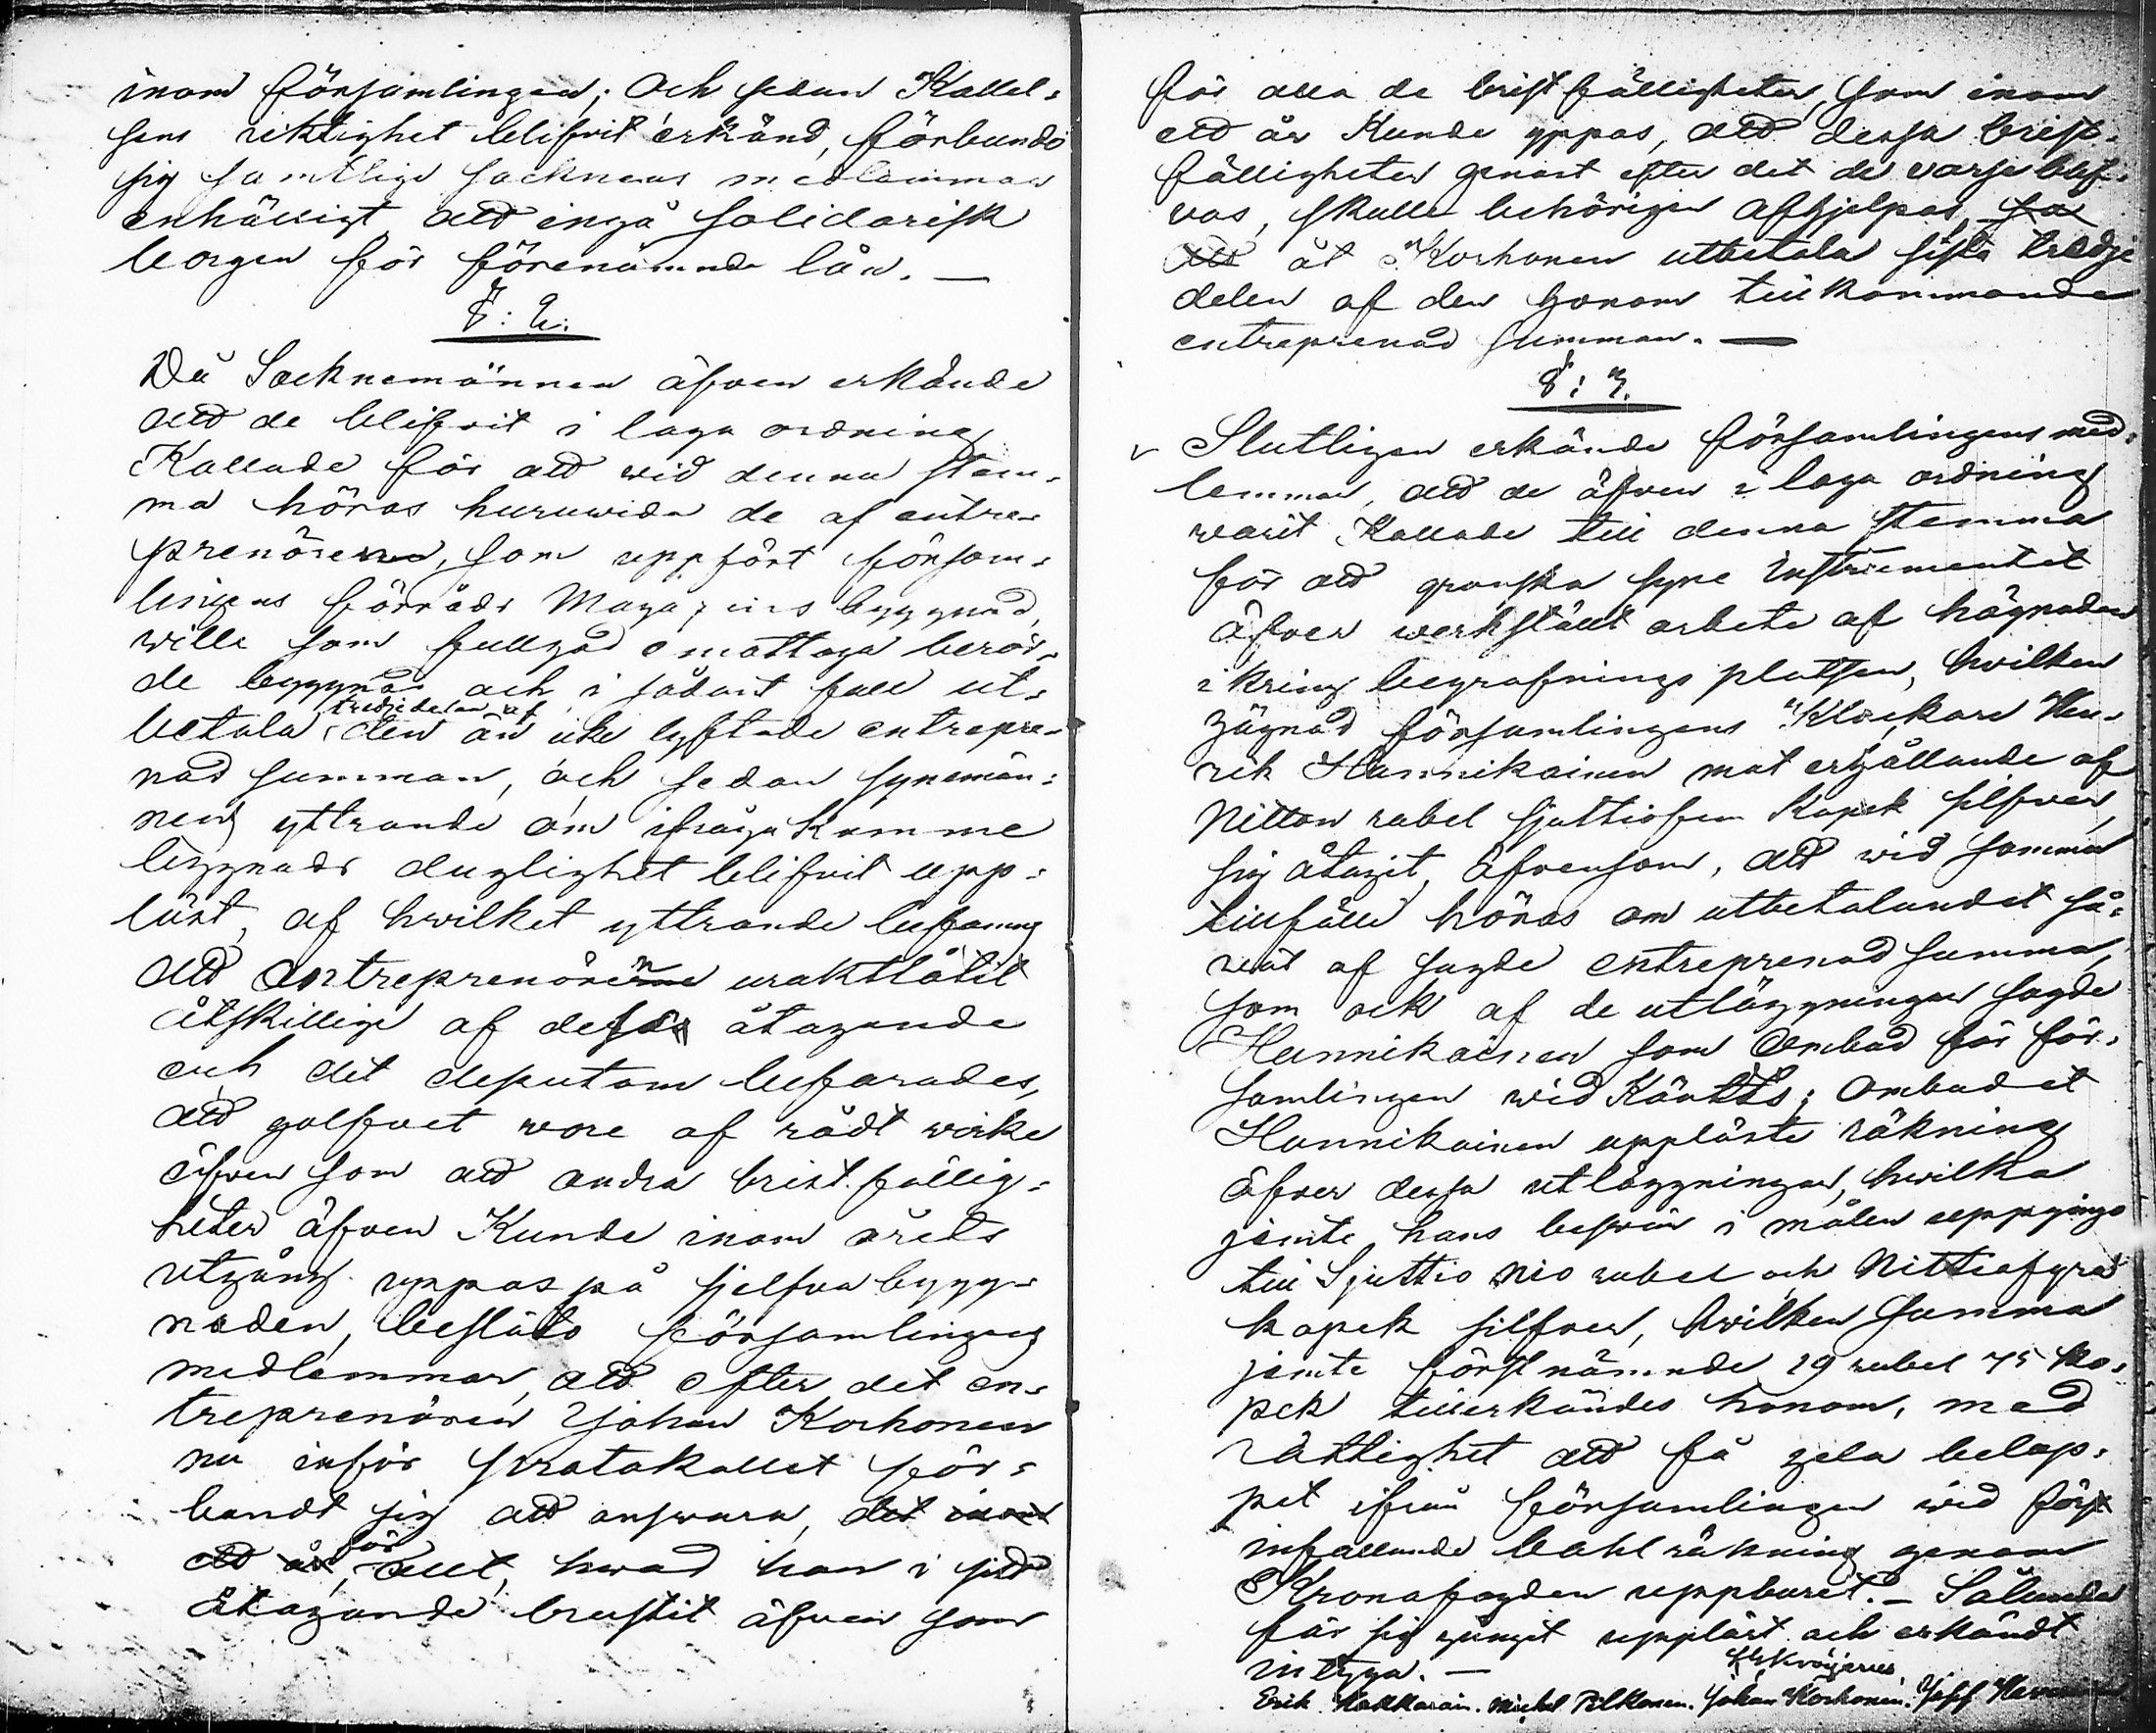 inom församlingen; Och sedan Kallel=
sens riktighet blifvit erkänd, förbundo
sig samtlige socknens medlemmar
enhälligt att ingå solidarisk
borgen för förenämnde lån. —
§: 2.
Då Socknemännen äfven erkände
att de blifvit i laga ordning
Kallade för att wid denna stem=
ma höras huruwida de af entre=
prenören, som uppfört försam=
lingens förråds Magazins byggnad,
wille som fullgod emottaga berör=
de byggnad och i sådant fall ut=
betala tredjedelen af den än icke lyftade entrepre=
nad summan, och sedan synemän=
nens yttrande om ifrågakomne
byggnads duglighet blifvit upp=
läst, af hwilket yttrande befanns
att Entreprenören uraktlåtit
åtskillige af dess åtagande
och det deputom befarades,
att golfvet wore af rådt wirke
äfven som att andra bristfällig=
heter äfven Kunde inom årets
utgång yppas på sjelfva bygg=
naden, beslöto församlingens
medlemmar, att efter det en=
treprenören Johan Korhonen
nu inför protokollet för=
bandt sig att answara, det inom
ett år, för allt, hwad han i sitt
åtagande brustit äfven som
för alla de bristfälligheter, som inom
ett år Kunde yppas, att dessa brist=
fälligheter genast efter det de varse blif=
vas, skulle behörigen afhjelpas, för
att åt Korhonen utbetala sista tredje
delen af den honom tillkommande
entreprenad summan. —
§: 3.
Slutligen erkände församlingens med=
lemmar, att de äfven i laga ordning
warit Kallade till denna stemma
för att granska syne Instrumentet
äfver werkstäldt arbete af hägnaden
ikring begrafnings platsen, hwilken
hägnad församlingens Klockare Hen=
rik Hannikainen mot erhållande af
Nitton rubel sjuttiofem Kopek silfver,
sig åtagit, äfvensom, att wid samma
tillfälle höras om utbetalandet så=
wäl af sagde entreprenad summa,
som ock af de utläggningar sagde
Hannikainen som Ombud för för=
samlingen wid ; ombudet
Hannikainen uppläste räkning
äfver dessa utläggningar, hwilka
jemte hans beswär i målen uppgingo
till Sjuttio nio rubel och Nittiofyra
kopek silfver, hwilken summa
jemte förstnämnde 19 rubel 75 ko=
pek tillerkändes honom, med
rättighet att få hela belop=
pet ifrån församlingen wid först
infallande bahl räkning genom
Kronofogden uppburit. — Sålunda
för sig gånget uppläst och erkändt
intyga. —
Erik Kokkarain. Michel Pelkonen. Johan Korhonen.